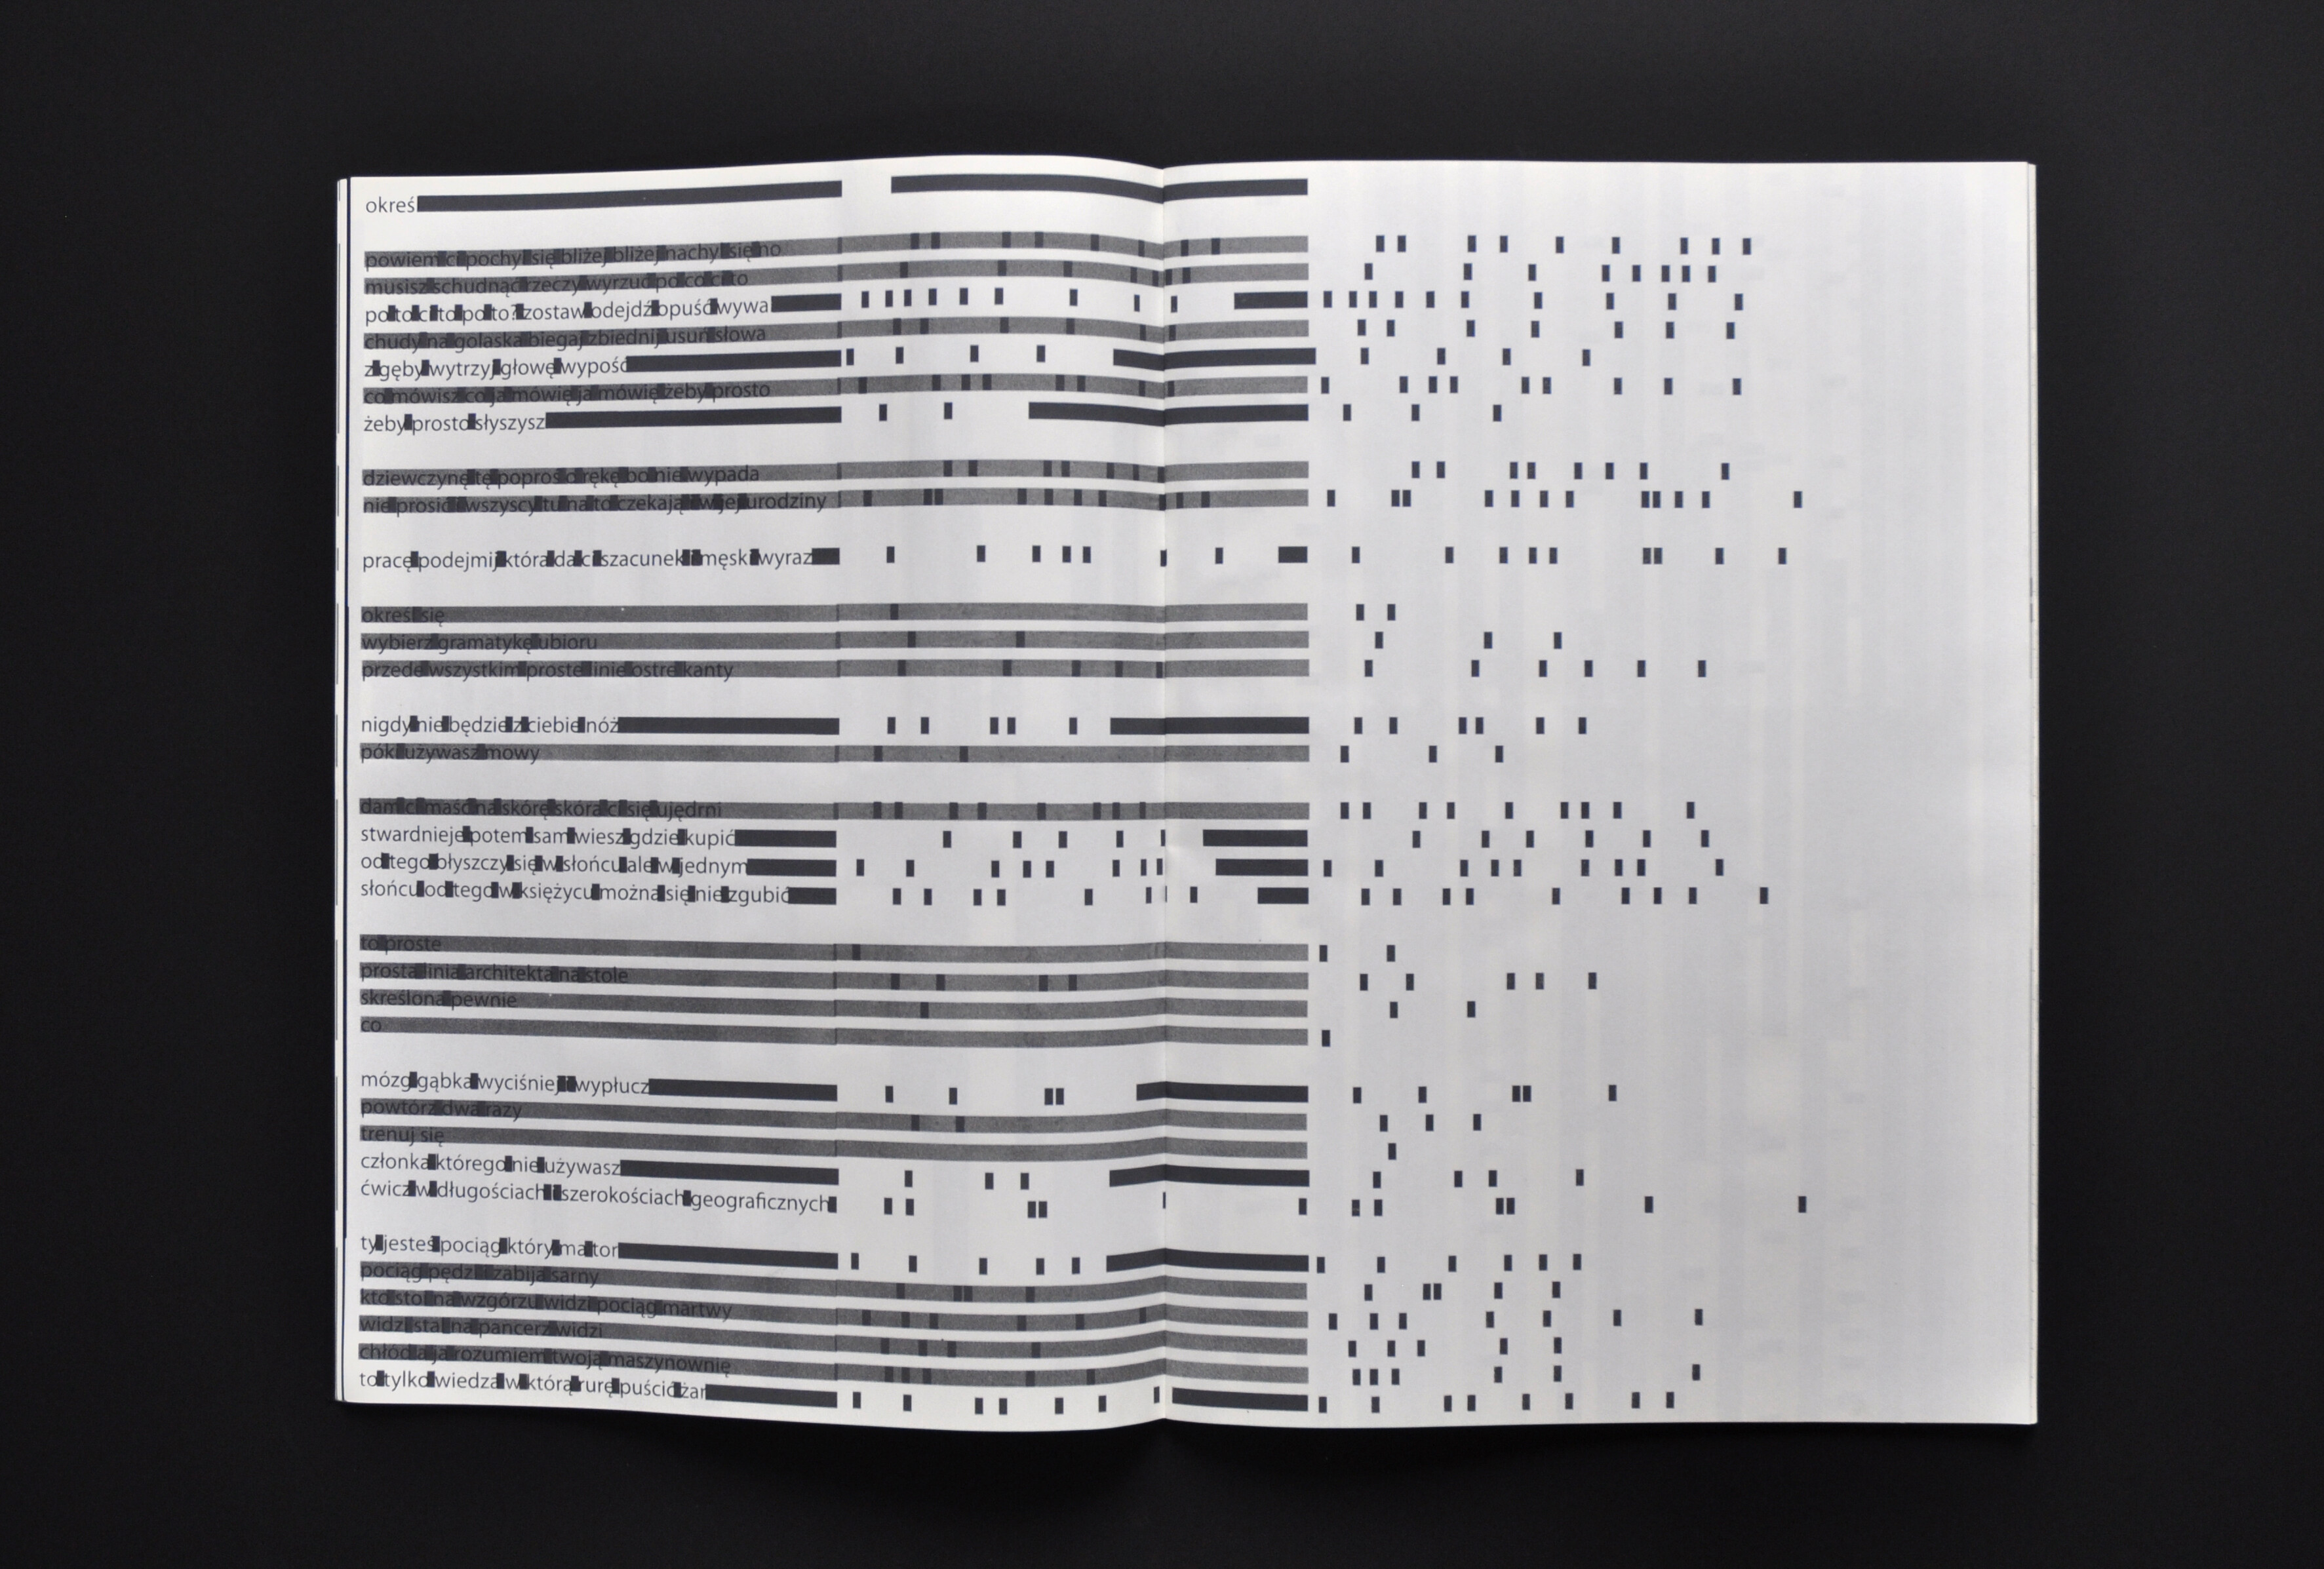 okreś
powiem ci pochyl się bliżej bliżej nachyl się no
musisz schudnąć rzeczy wyrzuć po co ci to
po to ci to po to? zostaw odejdź opuść wywal
chudy na golaska biegaj zbiednij usuń słowa
z gęby wytrzyj głowę wypość
co mówisz co ja mówię ja mówię żeby prosto
żeby prosto słyszysz
dziewczynę tę poproś o rękę bo nie wypada
nie prosić wszyscy tu na to czekają w jej urodziny
pracę podejmij która da ci szacunek i męski wyraz
określ się
wybierz gramatykę ubioru
przede wszystkim proste linie ostre kanty
nigdy nie będzie z ciebie nóż
póki używasz mowy
dam ci maść na skórę skóra ci się ujędrni
stwardnieje potem sam wiesz gdzie kupić
od tego błyszczy się w słońcu ale w jednym
słońcu od tego w księżycu można się nie zgubić
to proste
prosta linia architekta na stole
skreślona pewnie
co
mózg gąbka wyciśnie i wypłucz
powtórz dwa razy
trenuj się
członka którego nie używasz
ćwicz w długościach i szerokościach geograficznych
ty jesteś pociąg który ma tor
pociąg pędzi i zabija sarny
kto stoi na wzgórzu widzi pociąg martwy
widzi stal na pancerz widzi
chłód a ja rozumiem twoją maszynownię
to tylko wiedza w którą rurę puścić żar